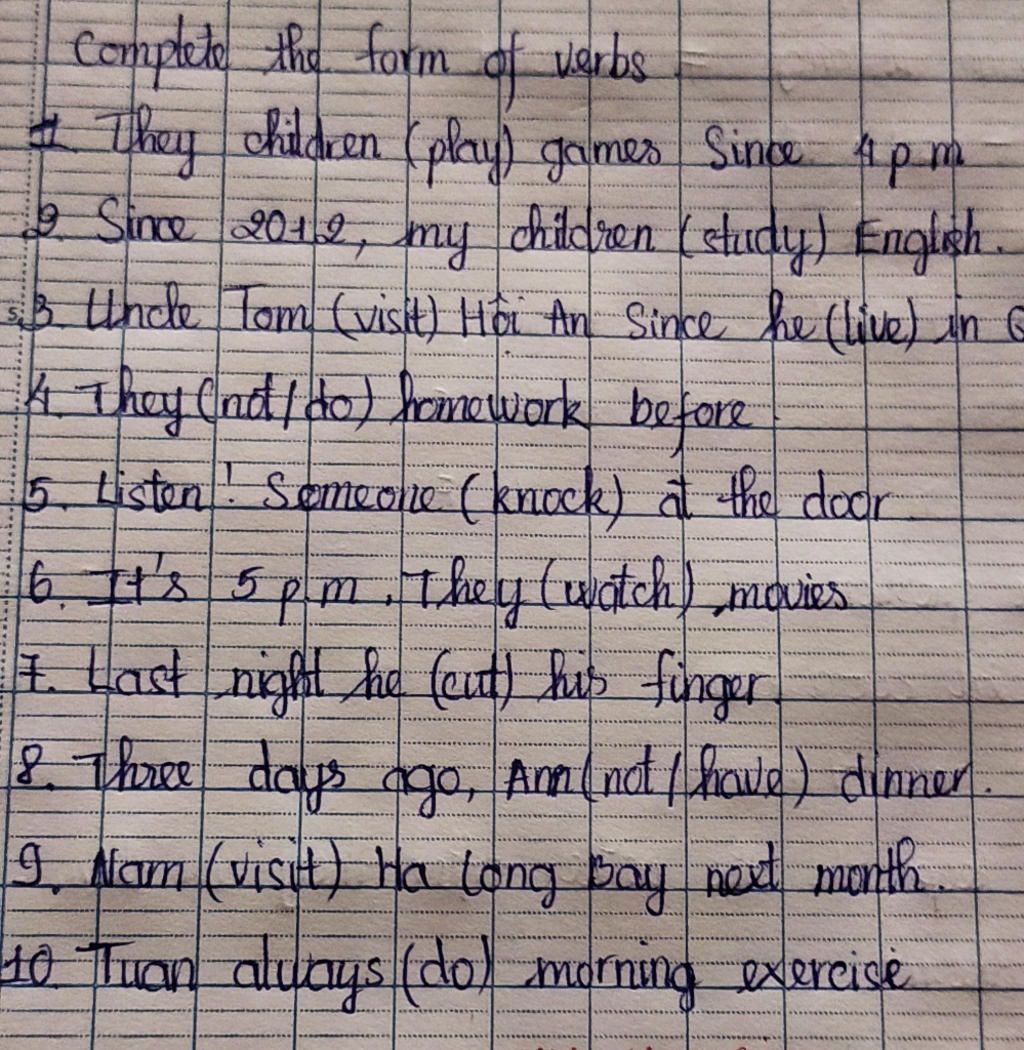 Complete the form of verbs
1. They children (play) games Since 4 p m
2. Since 2012, my children (study) English.
3. Uncle Tom (visit) Hội An Since he (live) in
4. They (not / do) homework before.
5. Listen! Someone (knock) at the door
6. It's 5 p m. They (watch) movies
7. Last night he (cut) his finger.
8. Three days ago, Ann (not / have) dinner.
9. Nam (visit) Ha Long Bay next month.
10 Tuan always (do) morning exercise